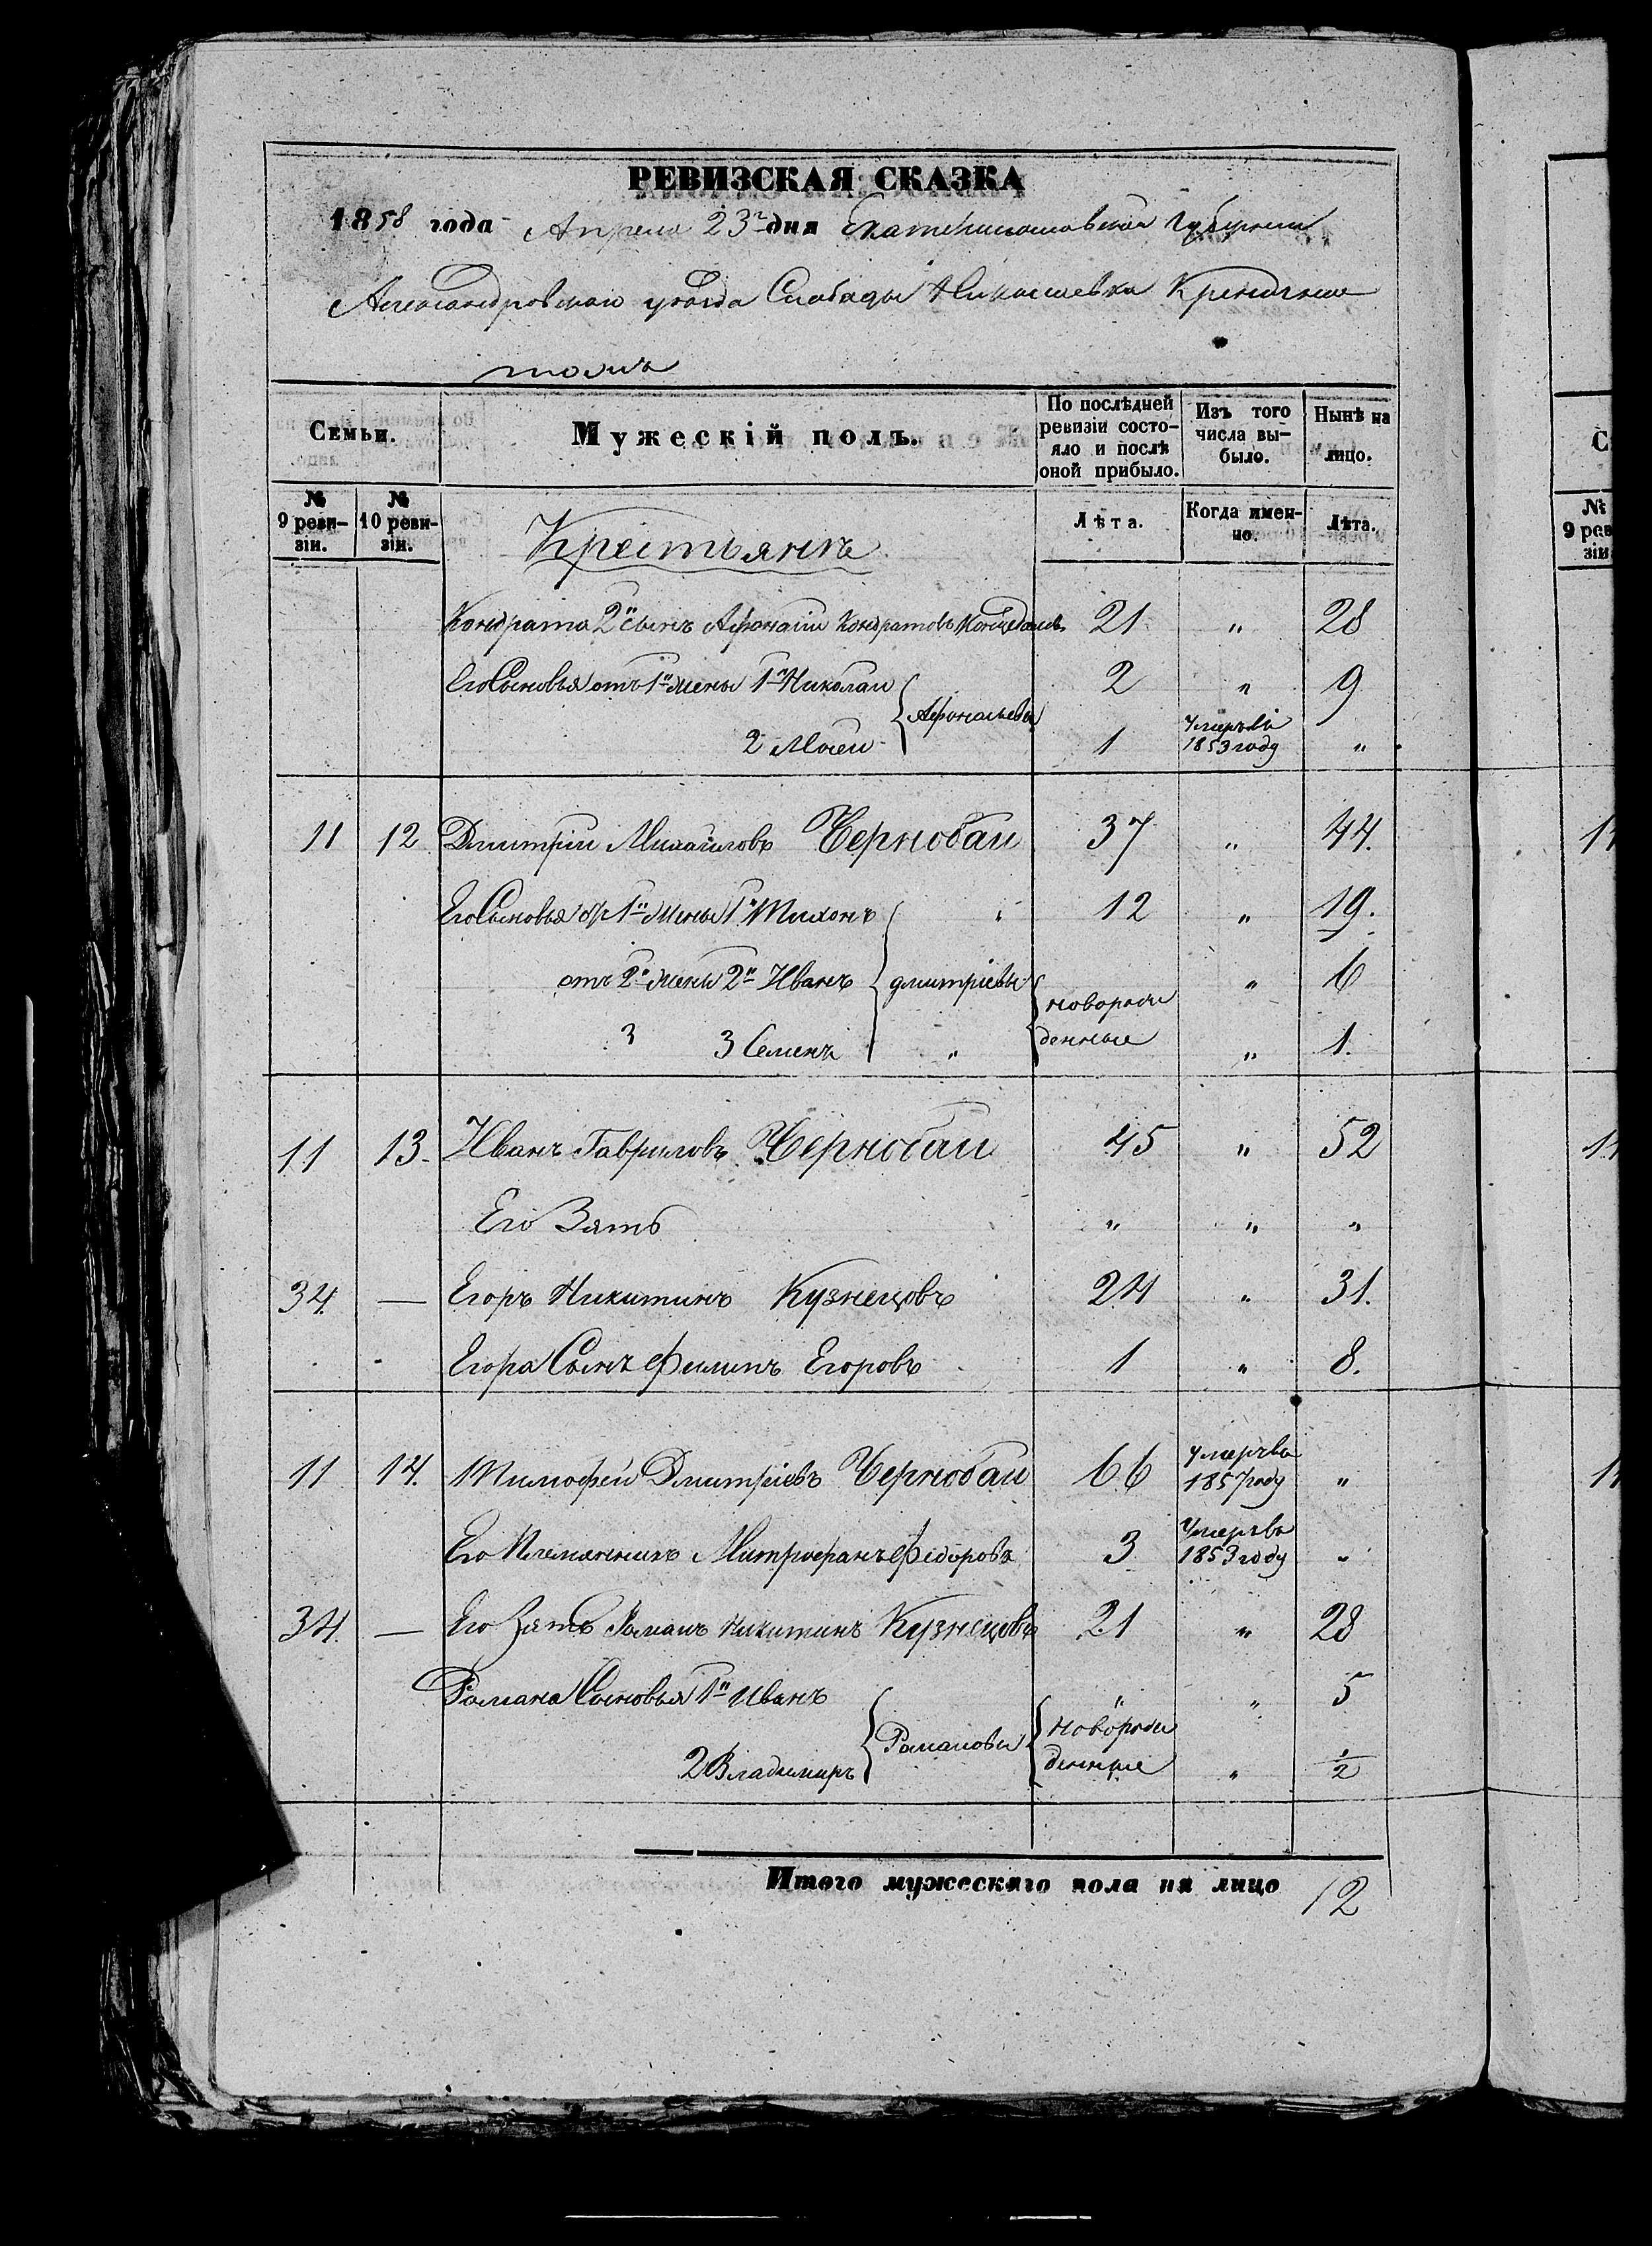 РЕВИЗСКАЯ СКАЗКА
1858 года Апреля 23го дня Екатеринославской Губернии
Александровскаго уѣзда Слободы Николаевка
тожъ
Семьи.
Мужескій полъ.
По послѣдней ревизіи состо-
яло и послѣ оной прибыло.
Изъ того числа вы-
было.
Нынѣ на лицо.
№ 9 реви-
зіи.
№ 10 реви-
зіи.
Крестьянъ
Лѣта.
Когда имен-
но.
Лѣта.
Кондрата 2й сынъ Афонасій Кондратовъ 21 " 28
Его Сыновья отъ 1й жены 1й Николай 2 " 9
Афонасьевы
2 Мосей 1 Умеръ въ 1853 году "
11 12 Дмитрій Михайловъ Чернобай 37 " 44.
Его Сыновья отъ 1й жены 1й Тихонъ " 12 " 19.
отъ 2й жены 2й Иванъ дмитріевы новорож " 6
3 3 Семенъ " денные " 1.
11 13. Иванъ Гавриловъ Чернобай 45 " 52
Его Зять " " "
34. — Егоръ Никитинъ Кузнецовъ 24 " 31.
Егора Сынъ Филипъ Егоровъ 1 " 8.
11 14. Тимофей Дмитріевъ Чернобай 66 Умеръ въ 1857 году "
Его Племянникъ Митрофанъ Федоровъ 3 Умеръ въ 1853 году "
34. — Его Зять Романъ Никитинъ Кузнецовъ 21 " 28
Романа Сыновья 1й Иванъ " " 5
Романовы новорож
2 Владимиръ денные " 1/2
Итого мужескаго пола на лицо 12
С
№
9 рев
зіи
11
11
11